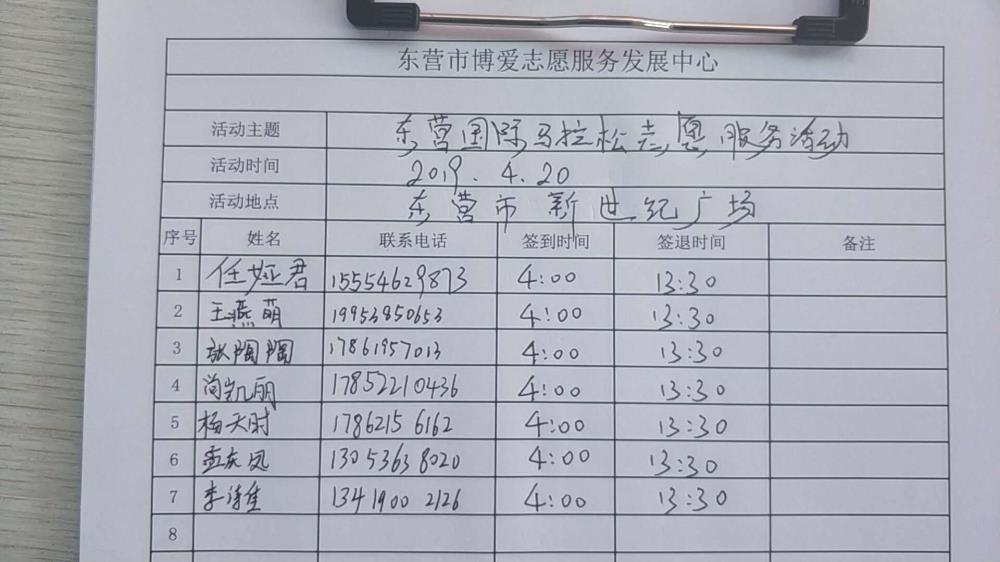 东营市博爱志愿服务发展中心
活动主题 东营国际马拉松志愿服务活动
活动时间 2019.4.20
活动地点 东营市新世纪广场
序号 姓名 联系电话 签到时间 签退时间 备注
1 任娅君 15554629873 4:00 13:30
2 王燕萌 19953850653 4:00 13:30
3 张陶陶 17861957013 4:00 13:30
4 尚凯丽 17852210436 4:00 13:30
5 杨天时 1786215 6162 4:00 13:30
6 孟庆凤 130 5363 8020 4:00 13:30
7 李 1341900 2126 4:00 13:30
8